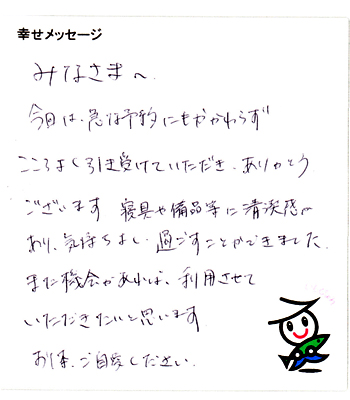 幸せメッセージ
みなさまへ
今日は、急な予約にもかかわらず
こころよく引き受けていただき、ありがとう
ございます 寝具や備品等に清潔感が
あり、気持ちよく過ごすことができました。
また機会があれば、利用させて
いただきたいと思います
お体、ご自愛ください。